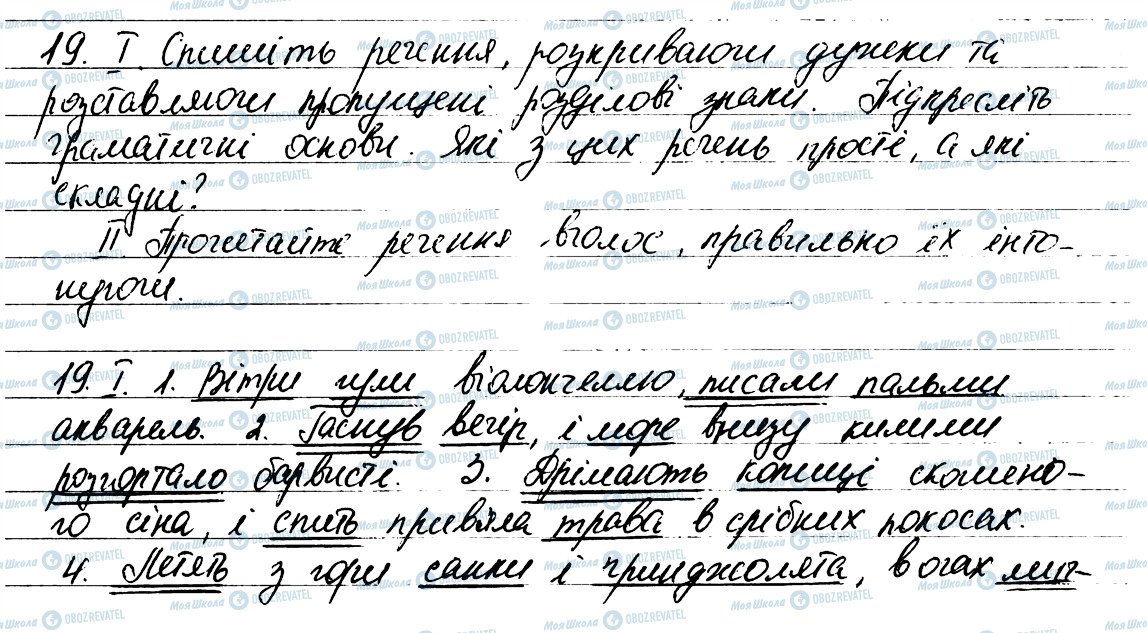 19. І. Спишіть речення, розкриваючи дужки та
розставляючи пропущені розділові знаки. Підкресліть
граматичні основи. Які з цих речень прості, а які
складні?
ІІ Прочитайте речення вголос, правильно їх інто-
нуючи.
19. І. 1. Вітри гули віолончеллю, писали пальми
акварель. 2. Гаснув вечір, і море внизу килими
розгортало барвисті. 3. Дрімають копиці скошено-
го сіна, і спить прив'яла трава в срібних покосах.
4. Летять з гори санки і гринджолята, в очах миг-